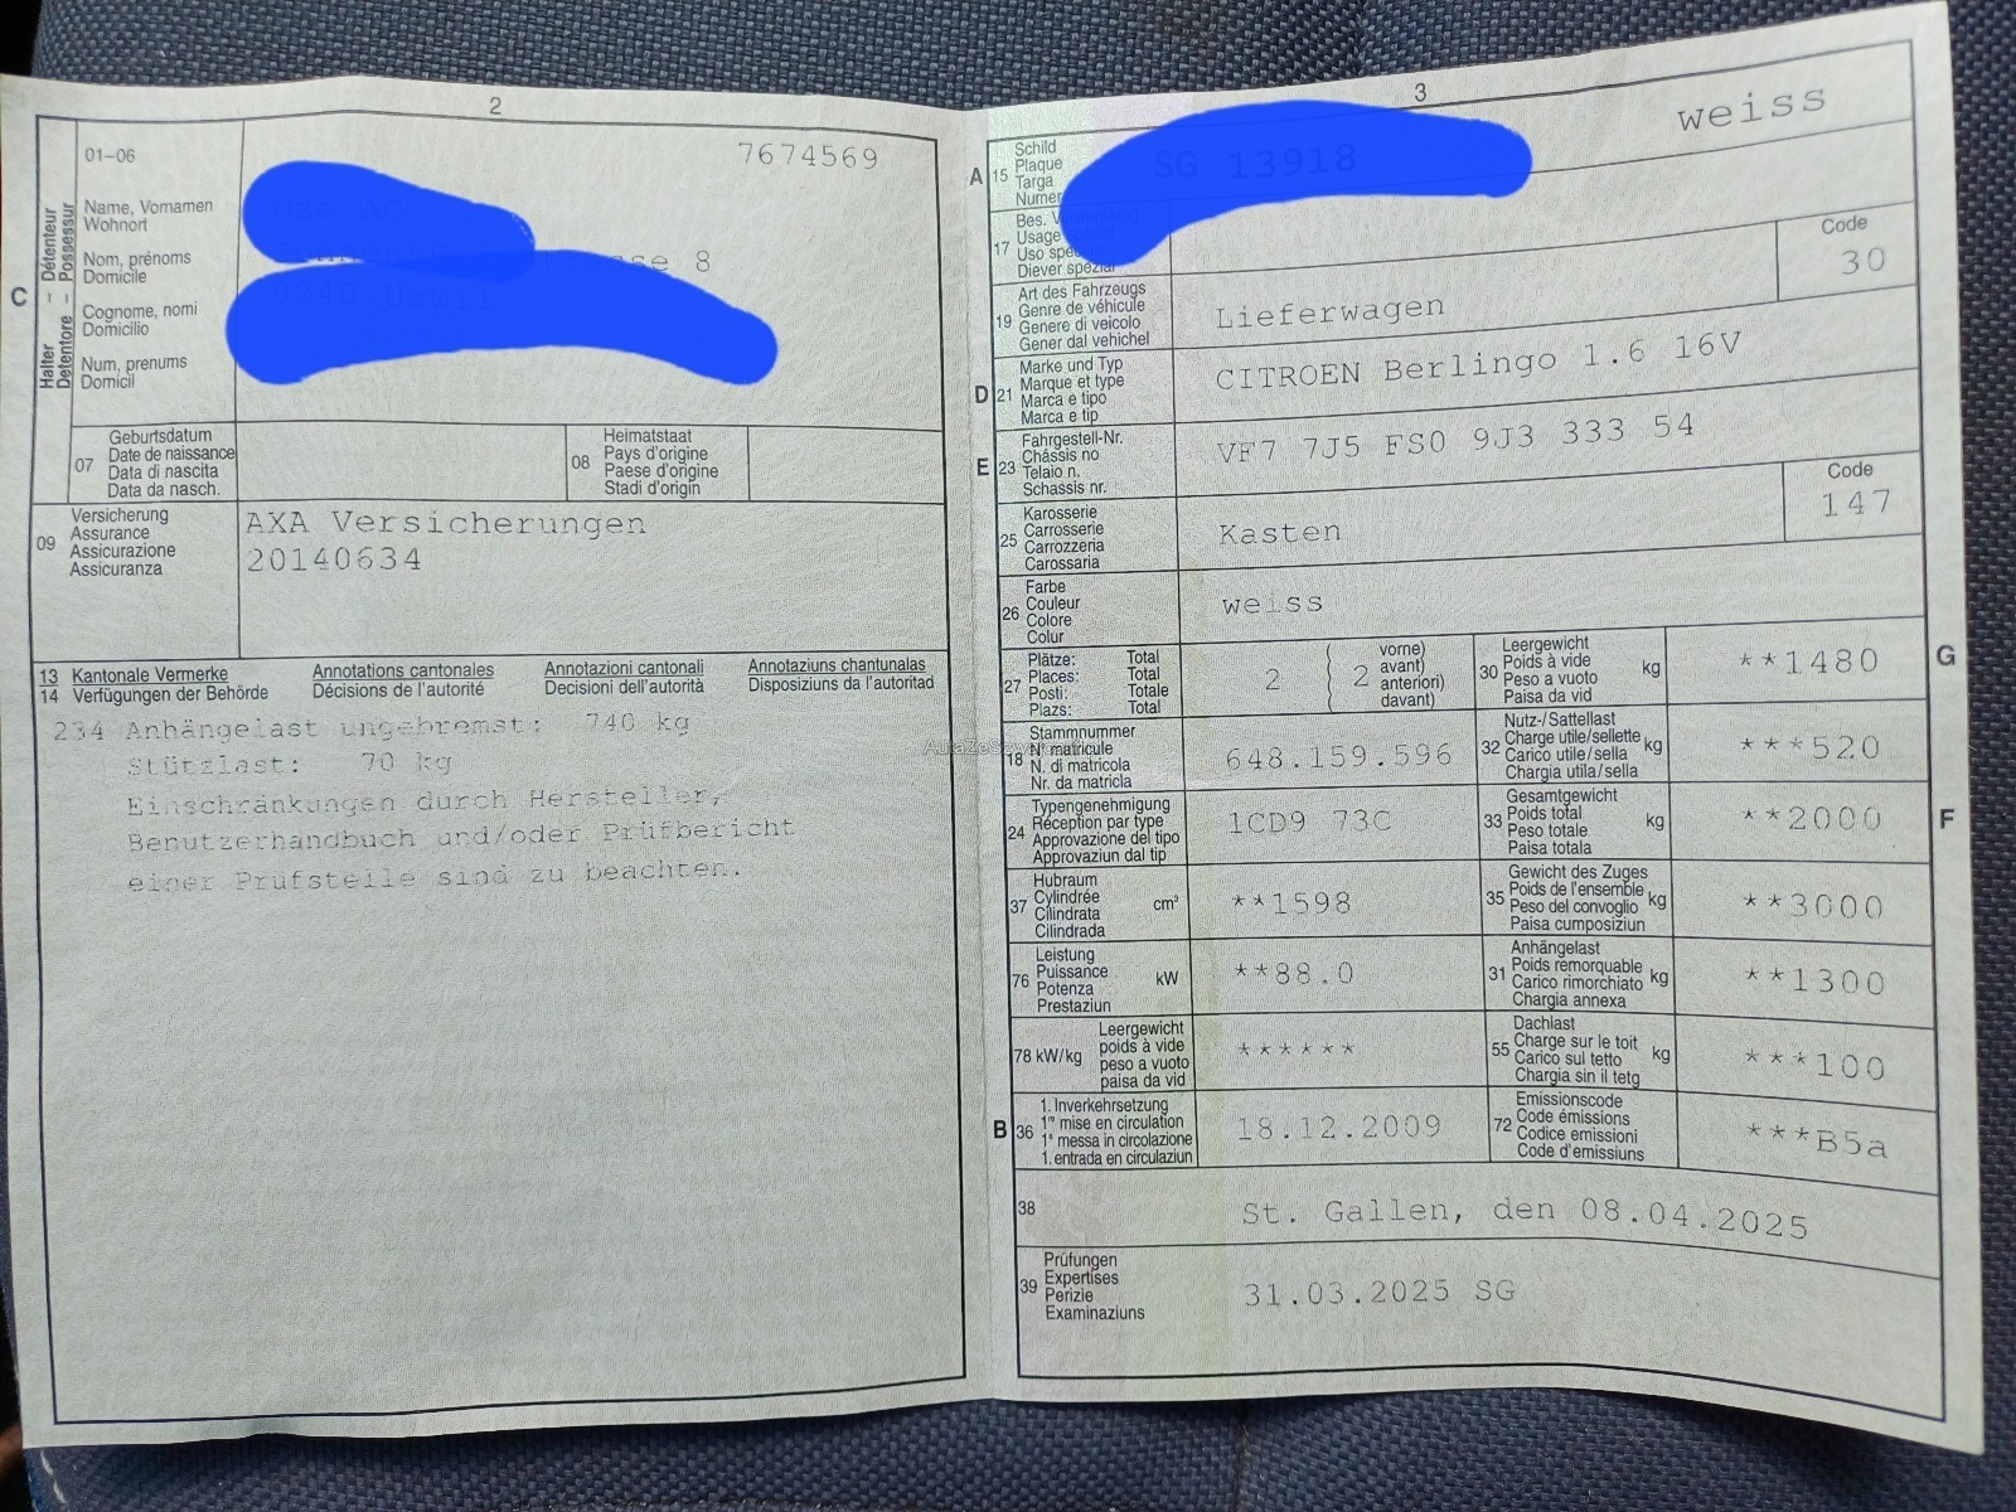 2
01-06
7674569
Name, Vornamen
Wohnort
Nom, prénoms
Domicile
Cognome, nomi
Domicilio
Num, prenums
Domicil
8
C
Halter - Détenteur
Detentore - Possessur
07
Geburtsdatum
Date de naissance
Data di nascita
Data da nasch.
08
Heimatstaat
Pays d'origine
Paese d'origine
Stadi d'origin
09
Versicherung
Assurance
Assicurazione
Assicuranza
AXA Versicherungen
20140634
13 Kantonale Vermerke Annotations cantonales Annotazioni cantonali Annotaziuns chantunalas
14 Verfügungen der Behörde Décisions de l'autorité Decisioni dell'autorità Disposiziuns da l'autoritad
234 Anhängelast ungebremst: 740 kg
Stützlast: 70 kg
Einschränkungen durch Hersteller,
Benutzerhandbuch und/oder Prüfbericht
einer Prüfstelle sind zu beachten.
3
weiss
A 15
Schild
Plaque
Targa
Numer
17
Bes.
Usage
Uso
Diever spezial
Code
30
19
Art des Fahrzeugs
Genre de véhicule
Genere di veicolo
Gener dal vehichel
Lieferwagen
D 21
Marke und Typ
Marque et type
Marca e tipo
Marca e tip
CITROEN Berlingo 1.6 16V
E 23
Fahrgestell-Nr.
Châssis no
Telaio n.
Schassis nr.
VF7 7J5 FS0 9J3 333 54
25
Karosserie
Carrosserie
Carrozzeria
Carossaria
Kasten
Code
147
26
Farbe
Couleur
Colore
Colur
weiss
27
Plätze: Total
Places: Total
Posti: Totale
Plazs: Total
2
2
vorne)
avant)
anteriori)
davant)
30
Leergewicht
Poids à vide kg
Peso a vuoto
Paisa da vid
**1480
G
18
Stammnummer
N° matricule
N. di matricola
Nr. da matricla
648.159.596
32
Nutz-/Sattellast
Charge utile/sellette kg
Carico utile/sella
Chargia utila/sella
***520
24
Typengenehmigung
Réception par type
Approvazione del tipo
Approvaziun dal tip
1CD9 73C
33
Gesamtgewicht
Poids total kg
Peso totale
Paisa totala
**2000
F
37
Hubraum
Cylindrée cm³
Cilindrata
Cilindrada
**1598
35
Gewicht des Zuges
Poids de l'ensemble
Peso del convoglio kg
Paisa cumposiziun
**3000
76
Leistung
Puissance kW
Potenza
Prestaziun
**88.0
31
Anhängelast
Poids remorquable
Carico rimorchiato kg
Chargia annexa
**1300
78 kW/kg
Leergewicht
poids à vide
peso a vuoto
paisa da vid
******
55
Dachlast
Charge sur le toit
Carico sul tetto kg
Chargia sin il tetg
***100
B 36
1. Inverkehrsetzung
1re mise en circulation
1a messa in circolazione
1. entrada en circulaziun
18.12.2009
72
Emissionscode
Code émissions
Codice emissioni
Code d'emissiuns
***B5a
38
St. Gallen, den 08.04.2025
39
Prüfungen
Expertises
Perizie
Examinaziuns
31.03.2025 SG